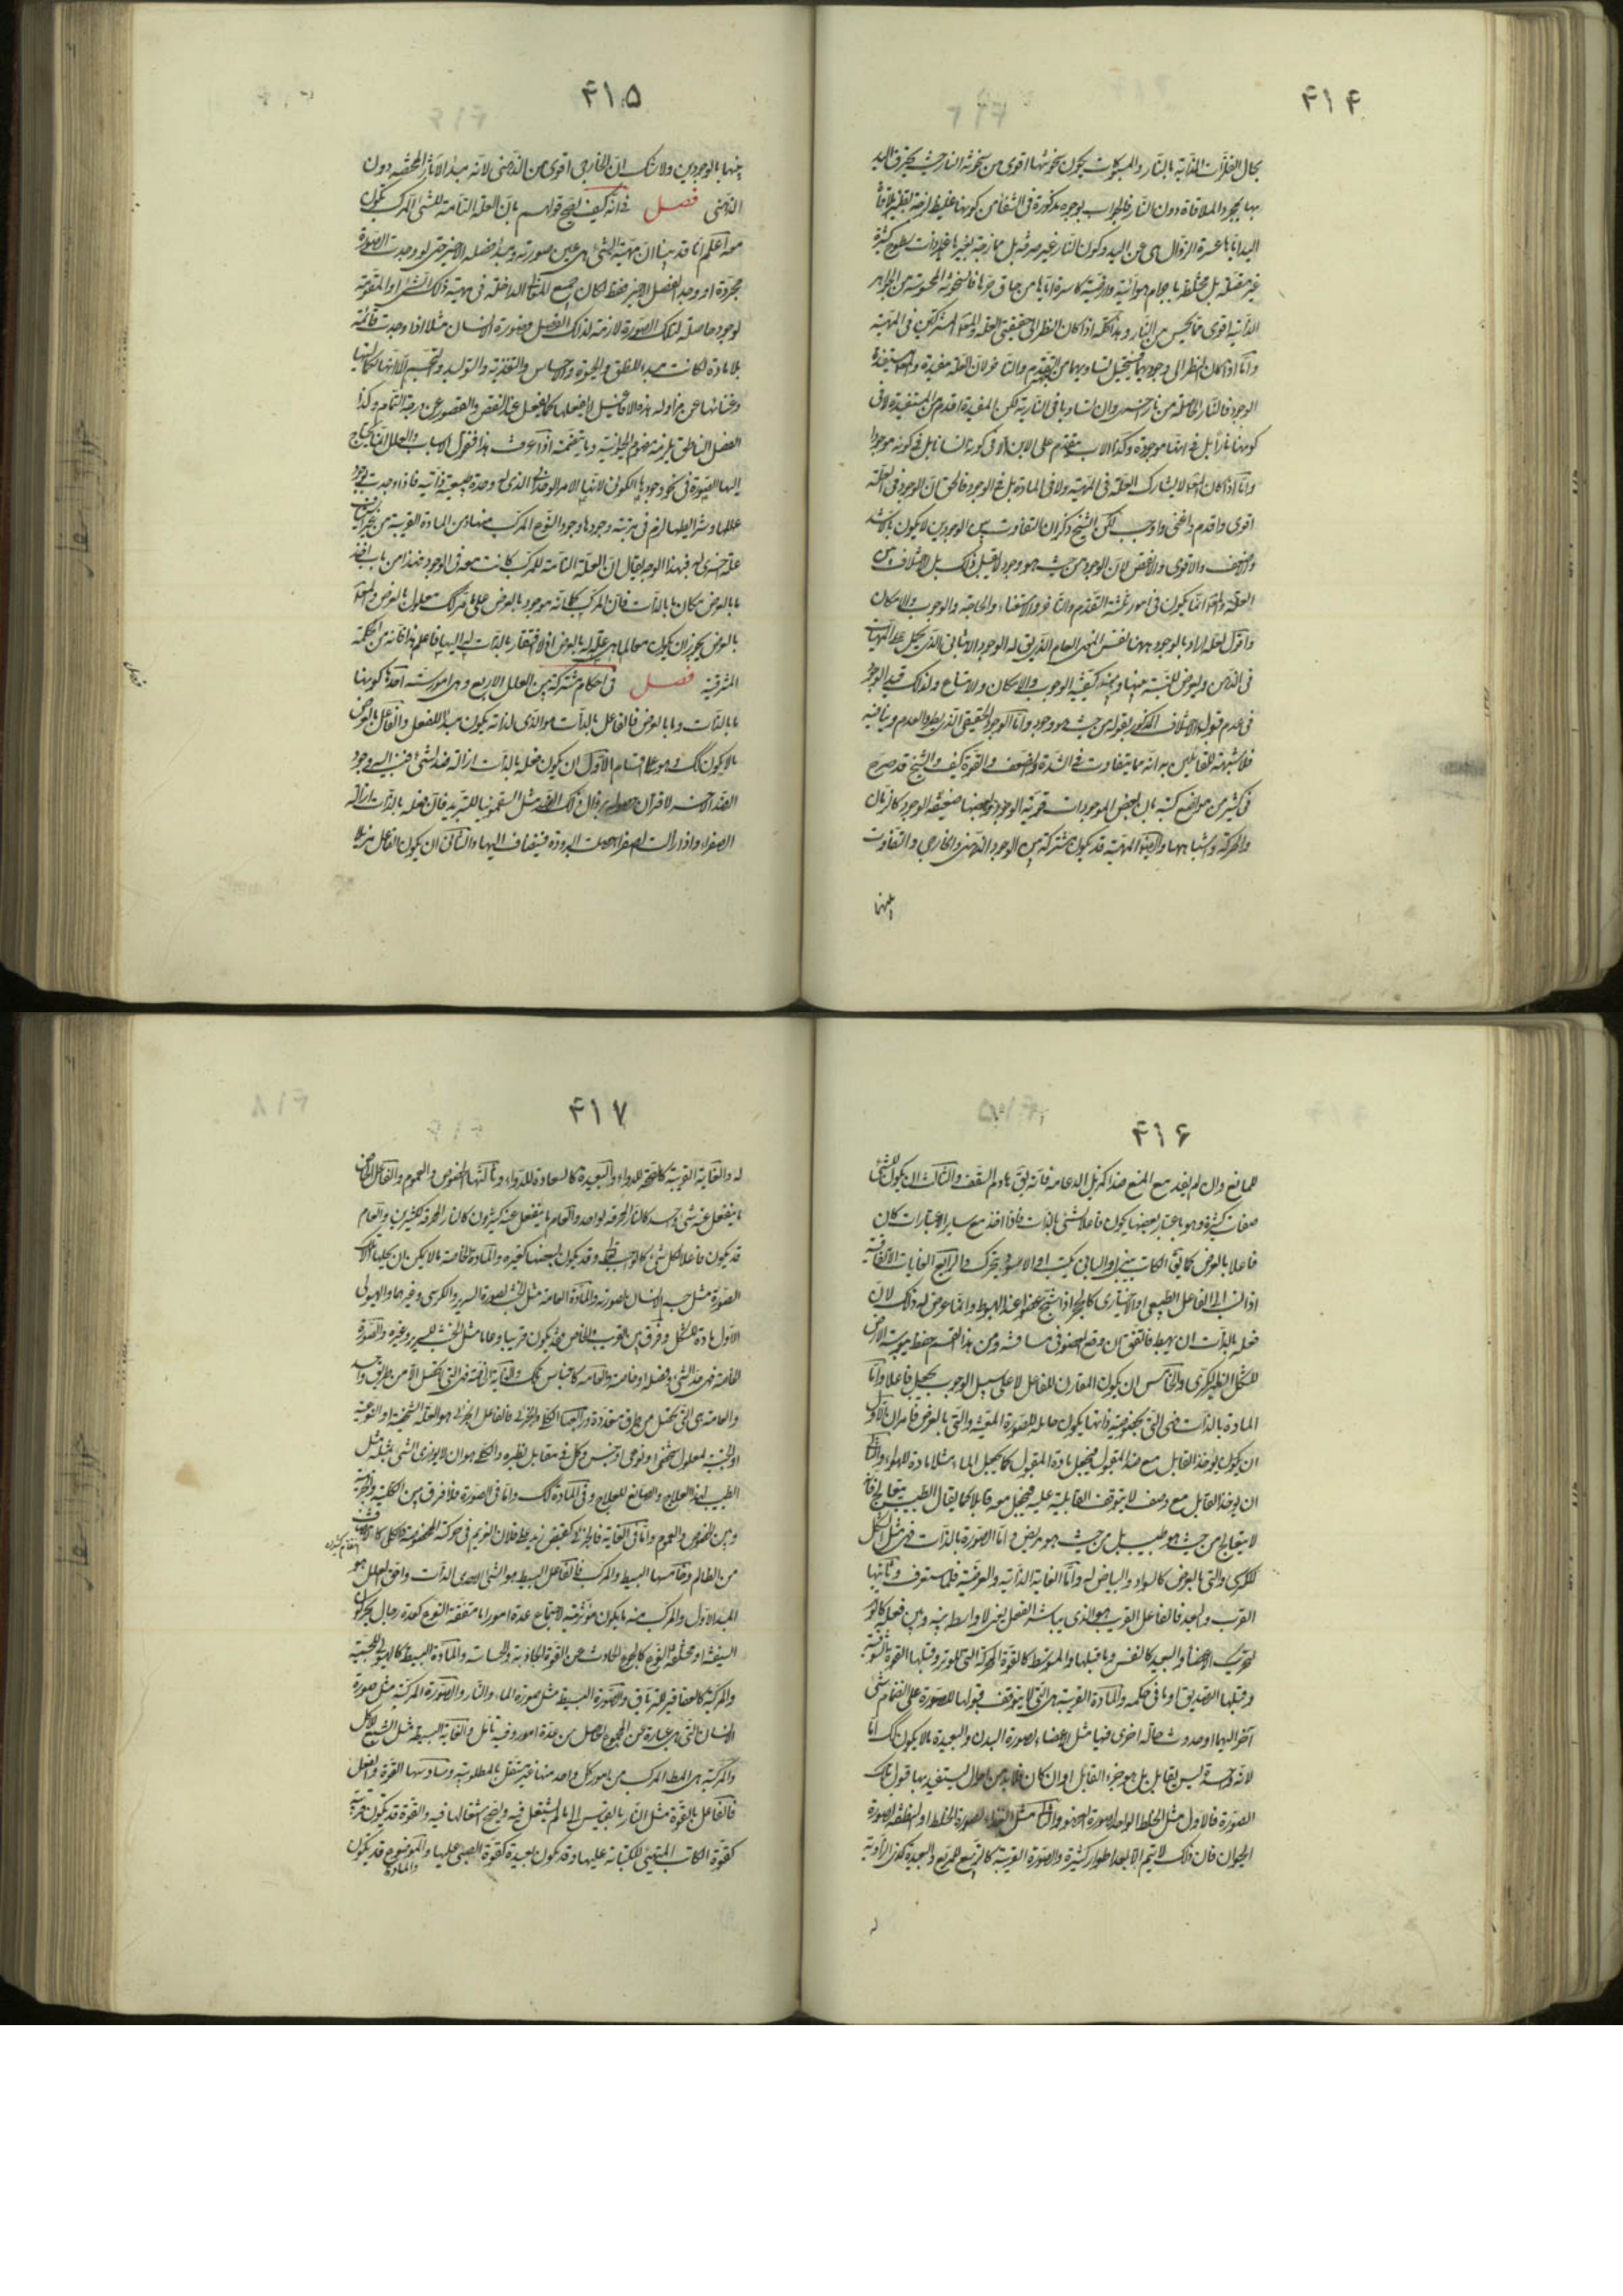 ۴۱۴
بحال الفلزات الذائبة بالنار والمسبوكات يكون سخونتها اقوى من سخونة النار حيث يحترق اليد
بها بمجرد الملاقاة دون النار فالجواب بوجوه مذكورة في الشفا من كونها غليظة لزجة بطيئة
اليد اياها عسرة الزوال عن اليد وكون النار غير صرفة بل ممازجة لغيرها
غير متصلة بل مختلطة باجرام هوائية وارضية كاسرة اياها من حاق حرها فالسخونة المحسوسة من الجواهر
الذائبة اقوى مما يحس من النار وهذا كله اذا كان النظر الى حقيقتي العلة والمعلول المشتركتين في المهية
واما اذا كان النظر الى وجوديهما فيستحيل تساويهما من التقدم والتاخر لان العلة مفيدة والمعلول مستفيد
الوجود فالنار الحاصلة من نار اخرى وان تساويا في النارية لكن المفيدة اقدم من المستفيدة لا في
كونها نارا بل في انها موجودة وكذا الاب متقدم على الابن لا في كونه انسانا بل في كونه موجودا
واما اذا كان المعلول لا يشارك العلة في المهية ولا في المادة بل في الوجود فالحق ان الوجود في العلة
اقوى واقدم واغنى واوجب لكن الشيخ ذكر ان التفاوت بين الوجودين لا يكون بالاشد
والاضعف والاقوى والانقص لان الوجود من حيث هو وجود لا يقبل ذلك بل الاختلاف بين
العلة والمعلول انما يكون في امور ثلثة التقدم والتاخر والاستغناء والحاجة والوجوب والامكان
واقول لعله اراد بالوجود ههنا نفس المعنى العام الذي يق له الوجود الاثباتي الذي يحمل على المهيات
في الذهن ويعرض للنسبة بينها وبينه كيفية الوجوب والامكان والامتناع ولذلك قيد الوجود
في عدم قبوله الاختلاف المذكور بقوله من حيث هو وجود واما الوجود الحقيقي الذي يطرد العدم وينافيه
فلا شبهة للقائلين به انه مما يتفاوت في الشدة والضعف والقوة كيف والشيخ قد صرح
في كثير من مواضع كتبه بان بعض الموجودات قوية الوجود وبعضها ضعيفة الوجود كالزمان
والحركة واشباهها والمهية قد يكون مشتركة بين الوجود الذهني والخارجي والتفاوت
بينها
۴۱۵
بينها بالوجودين ولا شك ان الخارجي اقوى من الذهني لانه مبدا الاثار المختصة دون
الذهني فصل في انه كيف يصح قولهم بان العلة التامة للشئ المركب يكون
معه اعلم انا قد بينا ان مهية الشئ هي عين صورته ومبدا فصله الاخير حتى لو وجدت الصورة
مجردة او وجد الفصل الاخير فقط لكان جميع المعاني الداخلة في مهية ذلك الشئ او المقومة
لوجوده حاصلة لتلك الصورة لازمة لذلك الفصل فصورة الانسان مثلا اذا وجدت قائمة
بلا مادة لكانت مبدا للنطق والحيوة والاحساس والتغذية والتوليد والتجسيم الا انها لكماليتها
وغنائها عن مزاولة هذه الافاعيل لا يفعلها كما يفعل عند النقص والقصور عن درجة التمام وكذا
الفصل الناطق يلزمه مفهوم الحيوانية وما يتضمنه اذا عرفت هذا فنقول الاسباب والعلل انما يحتاج
اليها الصورة في نحو وجودها الكوني لانها الامر الوحداني الذي له وحدة طبيعية ذاتية فاذا وجدت بوجود
عللها وشرائطها لزم في مرتبة وجودها وجود النوع المركب منها ومن المادة القريبة من غير
علة اخرى له فبهذا الوجه يقال ان العلة التامة للمركب كانت معه في الوجود فهذا من باب اخذ
ما بالعرض مكان ما بالذات فان المركب كما انه موجود بالعرض كك معلول بالعرض والمعلول
بالعرض يجوز ان يكون معا لما هي علة له بالعرض اذ لا افتقار بالذات له اليها فاعلم هذا فانه من الحكمة
المشرقية فصل في احكام مشتركة بين العلل الاربع وهي امور ستة احدها كونها
ما بالذات وما بالعرض فالفاعل بالذات هو الذي لذاته يكون مبدا للفعل والفاعل بالعرض
ما لا يكون كك وهو على اقسام الاول ان يكون فعله بالذات ازالة ضد شئ فينسب اليه وجود
الضد الاخر لاقتران حصوله بزوال ذلك الضد مثل السقمونيا للتبريد فان فعله بالذات ازالة
الصفراء واذا زالت الصفراء حصلت البرودة فيضاف اليها والثاني ان يكون الفاعل مزيلا
۴۱۶
للمانع وان لم يفد مع المنع ضدا كمزيل الدعامة فانه يق هادم السقف والثالث ان يكون للشئ
صفات كثيرة وهو باعتبار بعضها يكون فاعلا لشئ بالذات فاذا اخذ مع ساير الاعتبارات كان
فاعلا بالعرض كما يق الكاتب يبني او الباني يكتب او الاسود يتحرك والرابع الغايات الاتفاقية
اذا نسب الى الفاعل الطبيعي او الاختياري كالحجر اذا شج عضوا عند الهبوط وانما عرض له ذلك لان
فعله بالذات ان يهبط فاتفق ان وقع العضو في مسافته ومن هذا القسم حفظ يبوسة الارض
للشكل الغير الكروي والخامس ان يكون المقارن للفاعل لا على سبيل الوجوب يجعل فاعلا واما
المادة بالذات فهي التي بخصوصية ذاتها يكون حاملة للصورة المعينة والتي بالعرض فامران الاول
ان يكون يؤخذ القابل مع ضد المقبول فيجعل مادة المقبول كما يجعل الماء مثلا مادة للهواء والثاني
ان يؤخذ القابل مع وصف لا يتوقف القابلية عليه فيجعل معه قابلا كما يقال الطبيب يتعالج فانه
لا يتعالج من حيث هو طبيب بل من حيث هو مريض واما الصورة بالذات فهي مثل الشكل
للكرسي والتي بالعرض كالسواد والبياض له واما الغاية الذاتية والعرضية فلها ستعرف وثانيها
القرب والبعد فالفاعل القريب هو الذي يباشر الفعل يعني لا واسطة بينه وبين فعله كالوتر
لتحريك الاعضاء والبعيد كالنفس وما قبلها والمتوسط كالقوة المحركة التي للوتر وقبلها القوة الشوقية
وقبلها التصديق او ما في حكمه والمادة القريبة هي التي لا يتوقف قبولها للصورة على انضمام شئ
آخر اليها او حدوث حالة اخرى فيها مثل الاعضاء لصورة البدن والبعيدة ما لا يكون كك اما
لانه وحده ليس بقابل بل هو جزء القابل او ان كان فلا بد من احوال يستفيد بها قبول تلك
الصورة فالاول مثل الخلط الواحد لصورة العضو والثاني مثل الغذاء لصورة الخلط او النطفة لصورة
الحيوان فان ذلك لا يتم الا بعد اطوار كثيرة والصورة القريبة كالتربيع للمربع والبعيدة كذي الزاوية
له
۴۱۷
له والغاية القريبة كالصحة للدواء والبعيدة كالسعادة للدواء وثالثها الخصوص والعموم والفاعل الخاص
ما ينفعل عنه شئ واحد كالنار المحرقة لواحد والعام ما ينفعل عنه كثيرون كالنار المحرقة لكثيرين والعام
قد يكون فاعلا لكل شئ كالواجب تعالى وقد يكون لبعضها كغيره والمادة الخاصة ما لا يمكن ان يحلها غير تلك
الصورة مثل جسم الانسان لصورته والمادة العامة مثل الخشب لصورة السرير والكرسي وغيرهما والهيولى
الاولى مادة للكل وفرق بين القريب والخاص فقد يكون قريبا وعاما مثل الخشب للسرير وغيره والصورة
الخاصة فهي حد الشئ وفصله او خاصته والعامة كاجناس تلك والغاية الخاصة فهي التي لا تحصل الا من طريق واحد
والعامة هي التي تحصل من طرق متعددة ورابعها الكلي والجزئي فالفاعل الجزئي هو العلة الشخصية او النوعية
او الجنسية لمعلول شخصي او نوعي او جنسي وكل في مقابل نظيره والكلي هو ان لا يوازي الشئ بمثله مثل
الطبيب لهذا العلاج والصانع للعلاج وفي المادة كك واما في الصورة فلا فرق بين الكلية والجزئية
وبين الخصوص والعموم واما في الغاية فالجزئي كقبض زيد على فلان الغريم في حركته المخصوصة والكلي كانتصافه
من الظالم وخامسها البسيط والمركب فالفاعل البسيط هو الشئ الاحدي الذات واحق العلل به هو
المبدا الاول والمركب منه ما يكون مؤثريته لاجتماع عدة امور اما متفقة النوع كعدة رجال يحركون
السفينة او مختلفة النوع كالجوع الحادث عن القوة الجاذبة والحساسة والمادة البسيطة كالهيولى للجسمية
والمركبة كالعقاقير للترياق والصورة البسيطة مثل صورة الماء والنار والصورة المركبة مثل صورة
الانسان التي هي عبارة عن المجموع الحاصل من عدة امور وفيه تامل والغاية البسيطة مثل الشبع للاكل
والمركبة هي المطلب المركب من امور كل واحد منها غير مستقل بالمطلوبية وسادسها القوة والفعل
فالفاعل بالقوة مثل النار بالقياس الى ما لم يشتعل فيه ويصح اشتعالها فيه والقوة قد يكون قريبة
كقوة الكاتب المتهيئ للكتابة عليها وقد يكون بعيدة كقوة الصبي عليها والموضوع قد يكون
والمادة